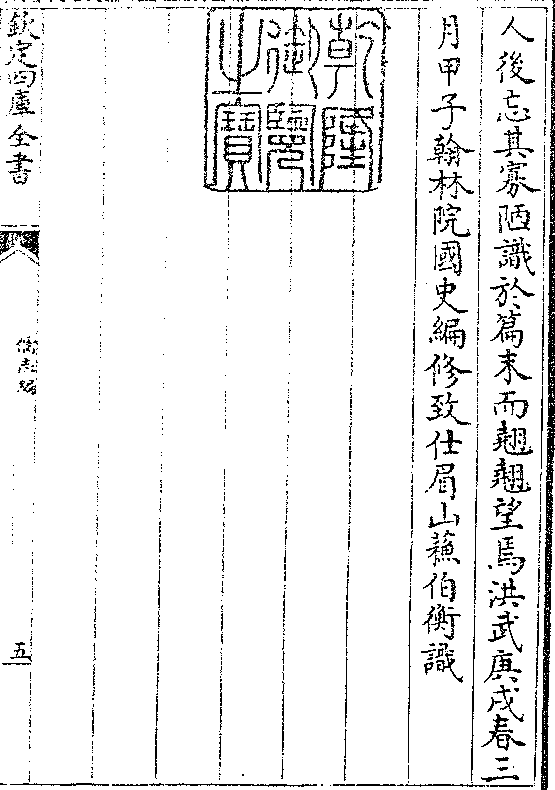 人後忘其寡陋識於篇末而翹翹望焉洪武庚戌春三
月甲子翰林院國史編修致仕眉山蘓伯衡識
乾隆
御覽
之寶
欽定四庫全書
儒志編
五